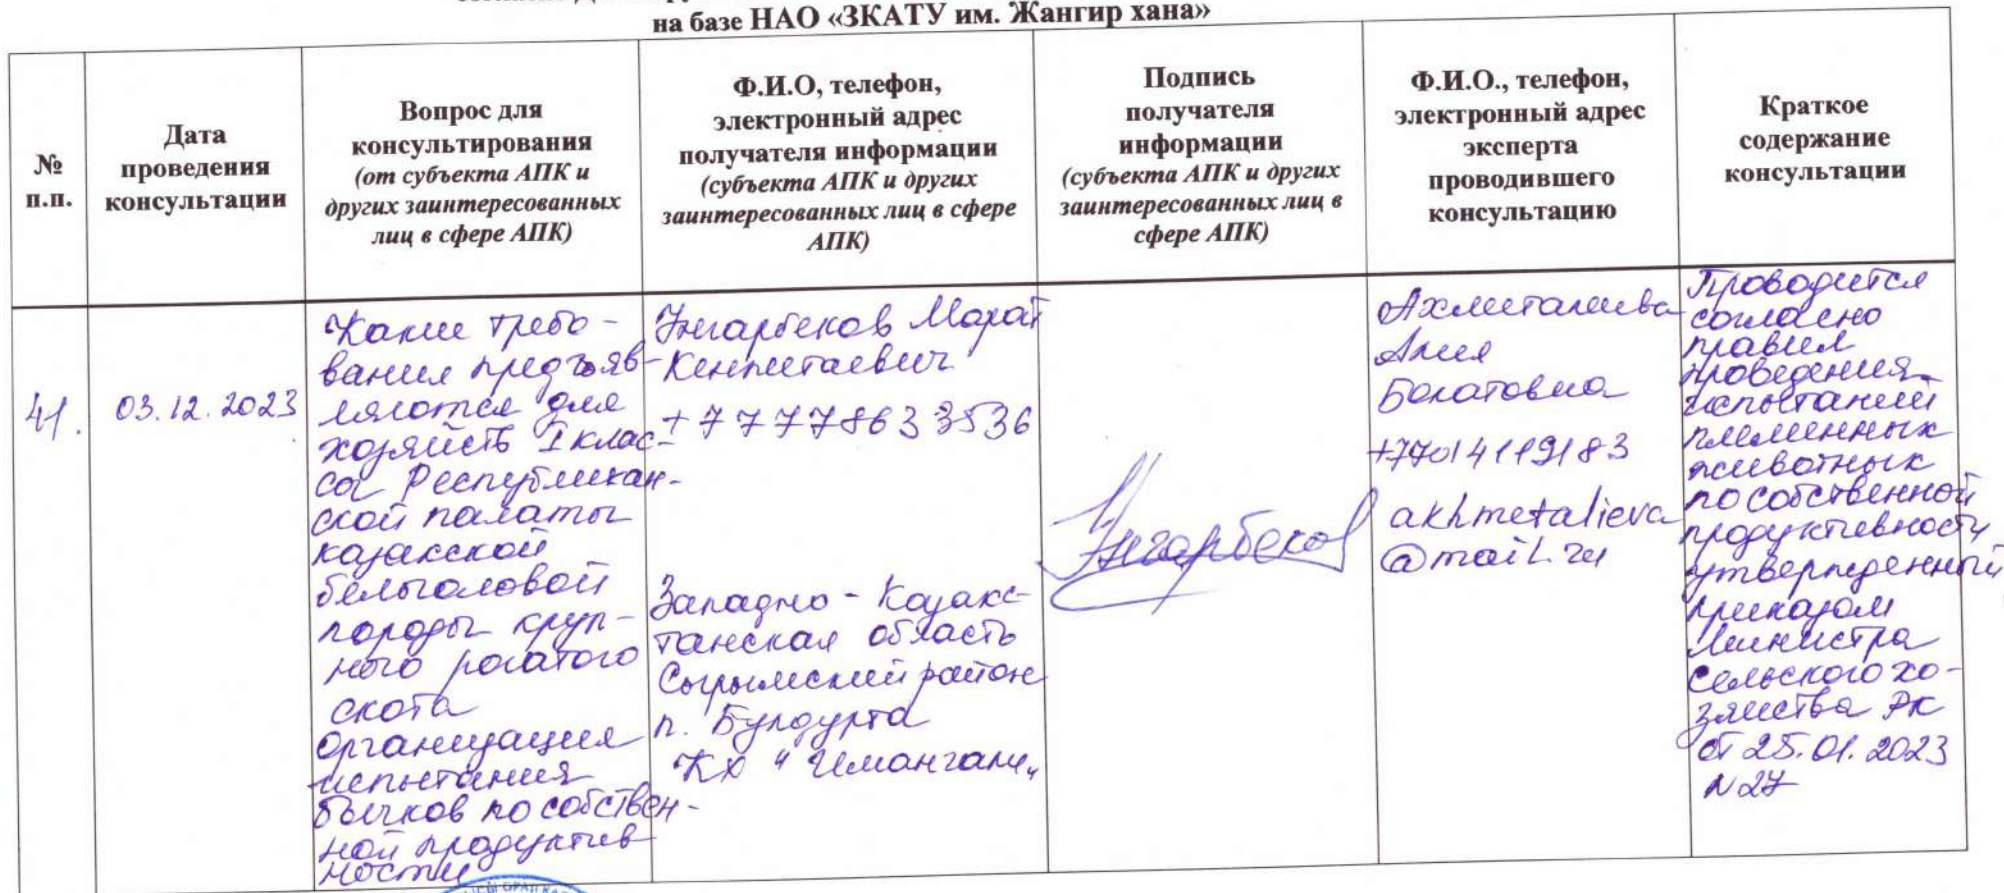 на базе НАО «ЗКАТУ им. Жангир хана»
№
п.п.
Дата
проведения
консультации
Вопрос для
консультирования
(от субъекта АПК и
других заинтересованных
лиц в сфере АПК)
Ф.И.О, телефон,
электронный адрес
получателя информации
(субъекта АПК и других
заинтересованных лиц в сфере
АПК)
Подпись
получателя
информации
(субъекта АПК и других
заинтересованных лиц в
сфере АПК)
Ф.И.О., телефон,
электронный адрес
эксперта
проводившего
консультацию
Краткое
содержание
консультации
41.
03.12.2023
Какие требо-
вания предъяв-
ляются для
хозяйств I клас-
са Республикан-
ской палаты
казахской
белоголовой
породы круп-
ного рогатого
скота
организация
испытания
бычков по собствен-
ной продуктив
ности
Унгарбеков Марат
Кенжетаевич
+77778633536
Западно-Казахс-
танская область
Сырымский район
п. Булдурта
КХ "Имангали"
Унгарбеков
Ахметалиева
Алия
Болатовна
+77014119183
akhmetalieva
@mail.ru
Проводится
согласно
правил
проведения
испытаний
племенных
животных
по собственной
продуктивности
утвержденный
приказом
Министра
сельского хо-
зяйства РК
от 25.01.2023
N27